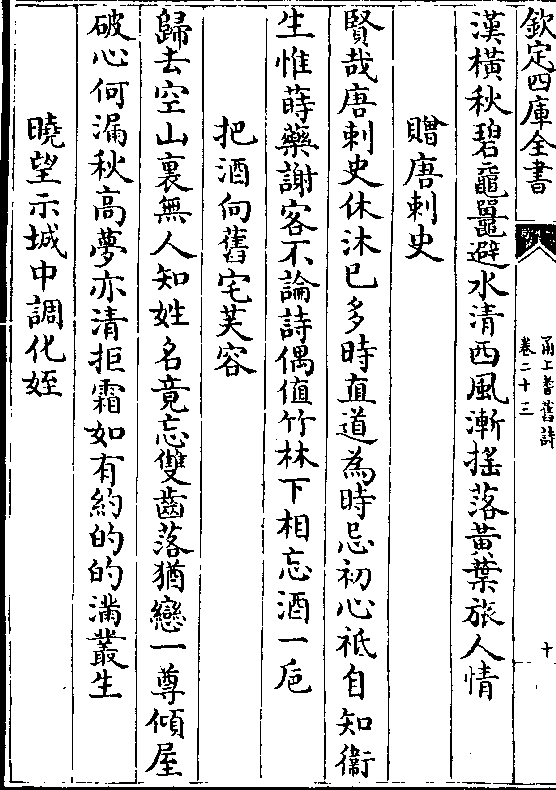 欽定四庫全書
甬上耆舊詩
卷二十三
十
漢橫秋碧黿鼉避水清西風漸搖落黃葉旅人情
贈唐刺史
賢哉唐刺史休沐已多時直道為時忌初心祇自知衞
生惟蒔藥謝客不論詩偶值竹林下相忘酒一巵
把酒向舊宅芙容
歸去空山裏無人知姓名竟忘雙齒落猶戀一尊傾屋
破心何漏秋高夢亦清拒霜如有約的的滿叢生
曉望示城中調化姪